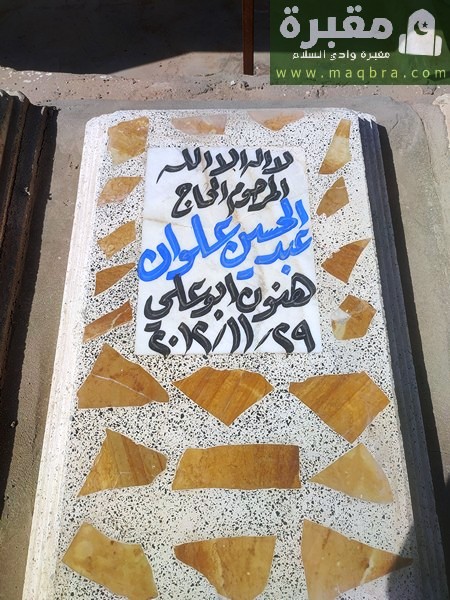 مقبرة
مقبرة وادي السلام
www.maqbra.com
لا اله الا الله
المرحوم الحاج
عبد الحسين علوان
هنون ابو علي
٢٠١٢/١١/٢٩